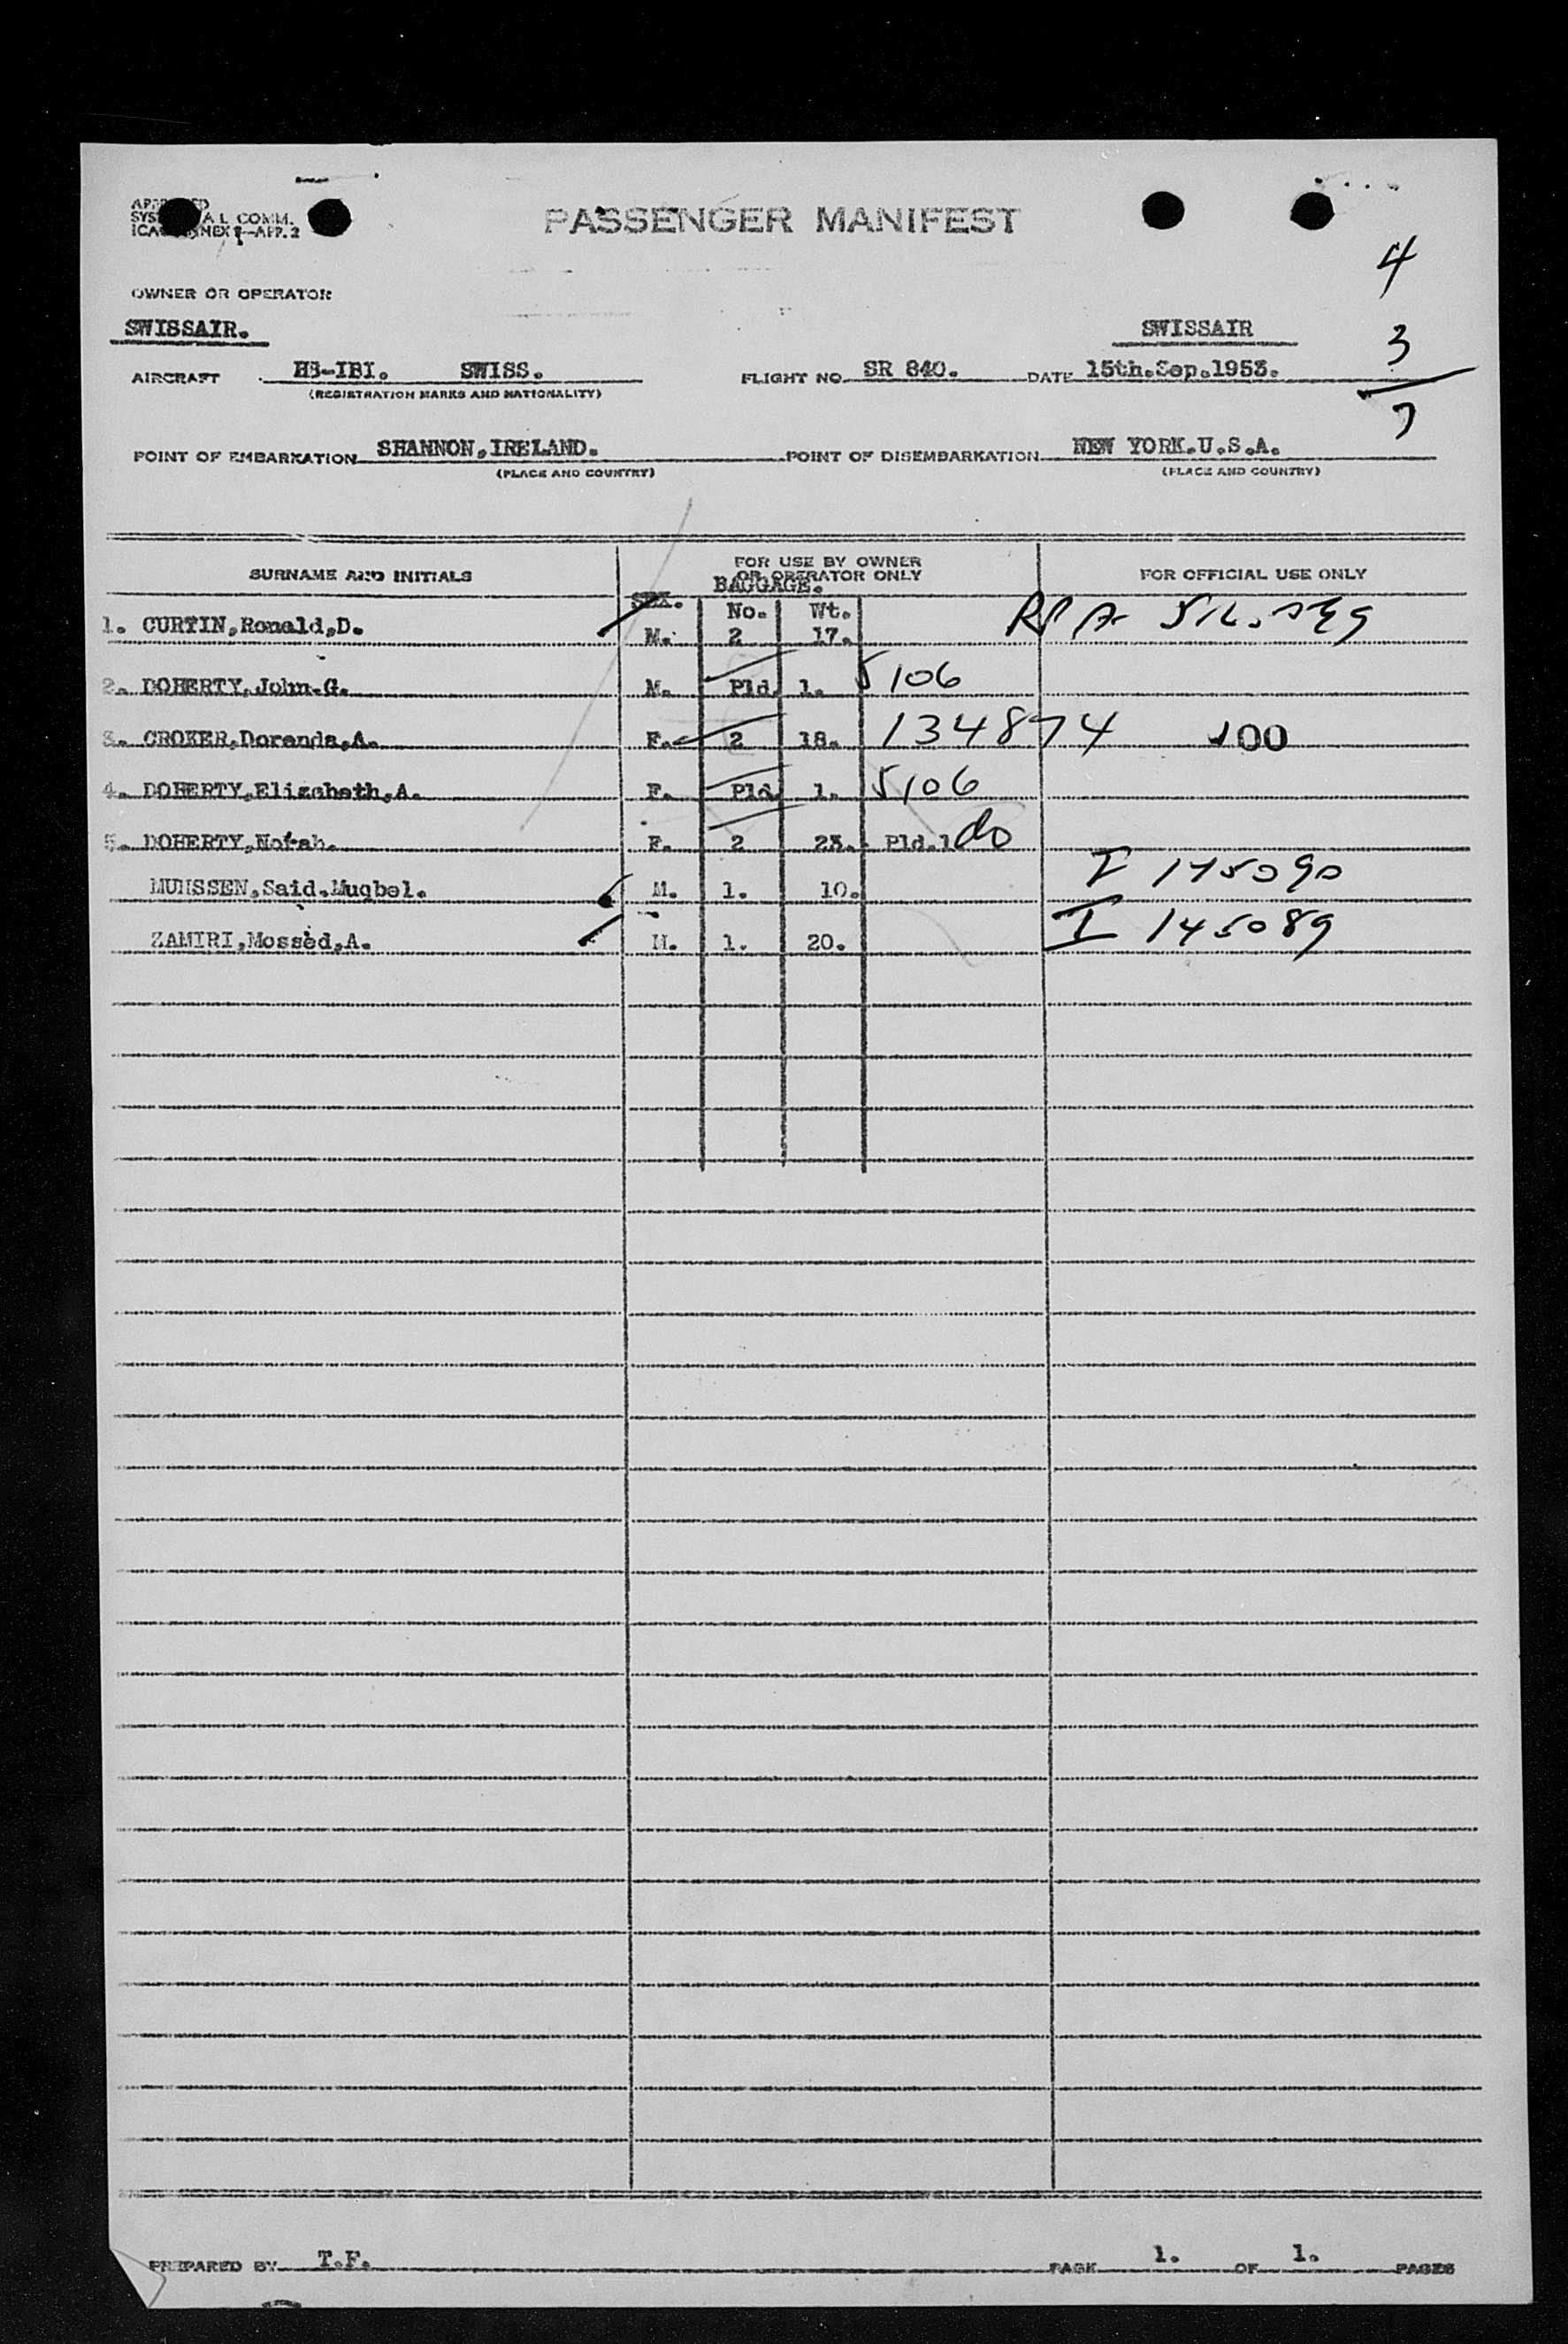 PASSENGER MANIFEST
SYS A L COMM.
ICA NNEX 9—APP. 2
4
OWNER OR OPERATOR
SWISSAIR. SWISSAIR
3
AIRCRAFT HB-IBI. SWISS. FLIGHT NO. SR 840. DATE 15th.Sep.1953.
(REGISTRATION MARKS AND NATIONALITY)
7
POINT OF EMBARKATION SHANNON,IRELAND. POINT OF DISEMBARKATION NEW YORK.U.S.A.
(PLACE AND COUNTRY) (PLACE AND COUNTRY)
SURNAME AND INITIALS FOR USE BY OWNER OR OPERATOR ONLY FOR OFFICIAL USE ONLY
BAGGAGE.
SEX. No. Wt.
1. CURTIN,Ronald,D. M. 2 17.
2. DOHERTY,John.G. M. Pld. 1. 5106
3. CROKER,Dorenda,A. F. 2 18. 134874 100
4. DOHERTY,Elizabeth,A. F. Pld 1. 5106
5. DOHERTY,Norah. F. 2 23. Pld.1 do
MUHSSEN,Said.Muqbel. M. 1. 10. I 145090
ZAMIRI,Mossed,A. M. 1. 20. I 145089
PREPARED BY T.F. PAGE 1. OF 1. PAGES